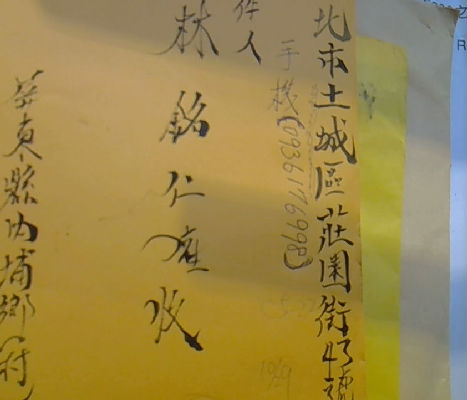 北市土城區莊園街43號
手機(0936176998)
件人
林銘仁應收
屏東縣內埔鄉村